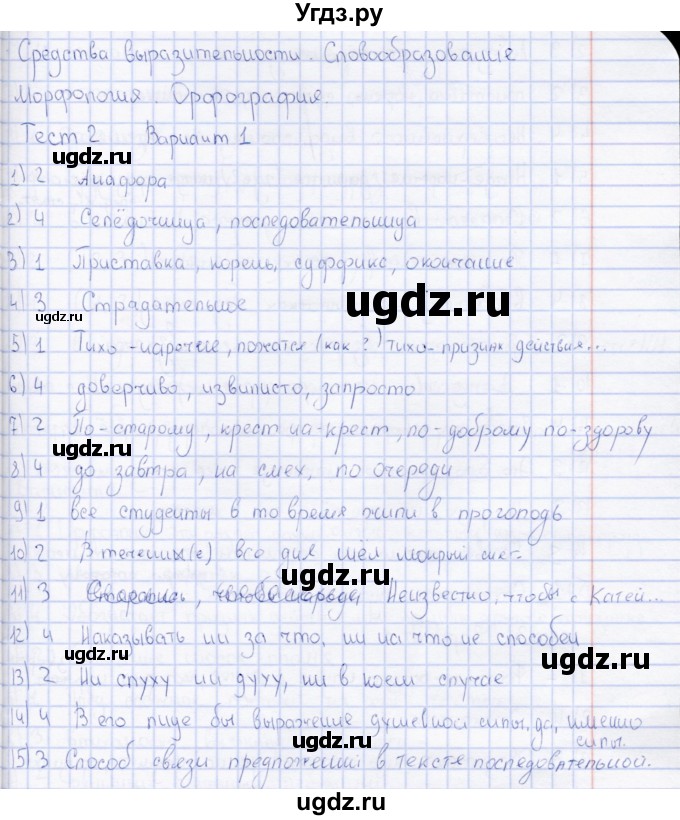 Угдз.ру
Средства выразительности. Словообразование
Морфология. Орфография.
Тест 2 Вариант 1
ugdz.ru
1) 2 Анафора
2) 4 Селёдочница, последовательница
3) 1 Приставка, корень, суффикс, окончание
ugdz.ru
4) 3 Страдательное
ugdz.ru
5) 1 Тихо - наречие, пожатся (как?) тихо - признак действия...
6) 4 доверчиво, извилисто, запросто
ugdz.ru
7) 2 По-старому, крест на-крест, по-доброму по-здорову
ugdz.ru
8) 4 до завтра, на смех, по очереди
9) 1 все студенты в то время жили в проголодь
10) 2 В течении(е) все дня шёл мокрый снег.
ugdz.ru
11) 3 Неизвестно, чтобы с Катей...
12) 4 Наказывать ни за что, ни на что не способен
ugdz.ru
ugdz.ru
13) 2 Ни слуху ни духу, ни в коем случае
14) 4 В его лице бы выражение душевной силы, да, именно
силы.
ugdz.ru
15) 3 Способ связи предложений в тексте последовательной.
ugdz.ru